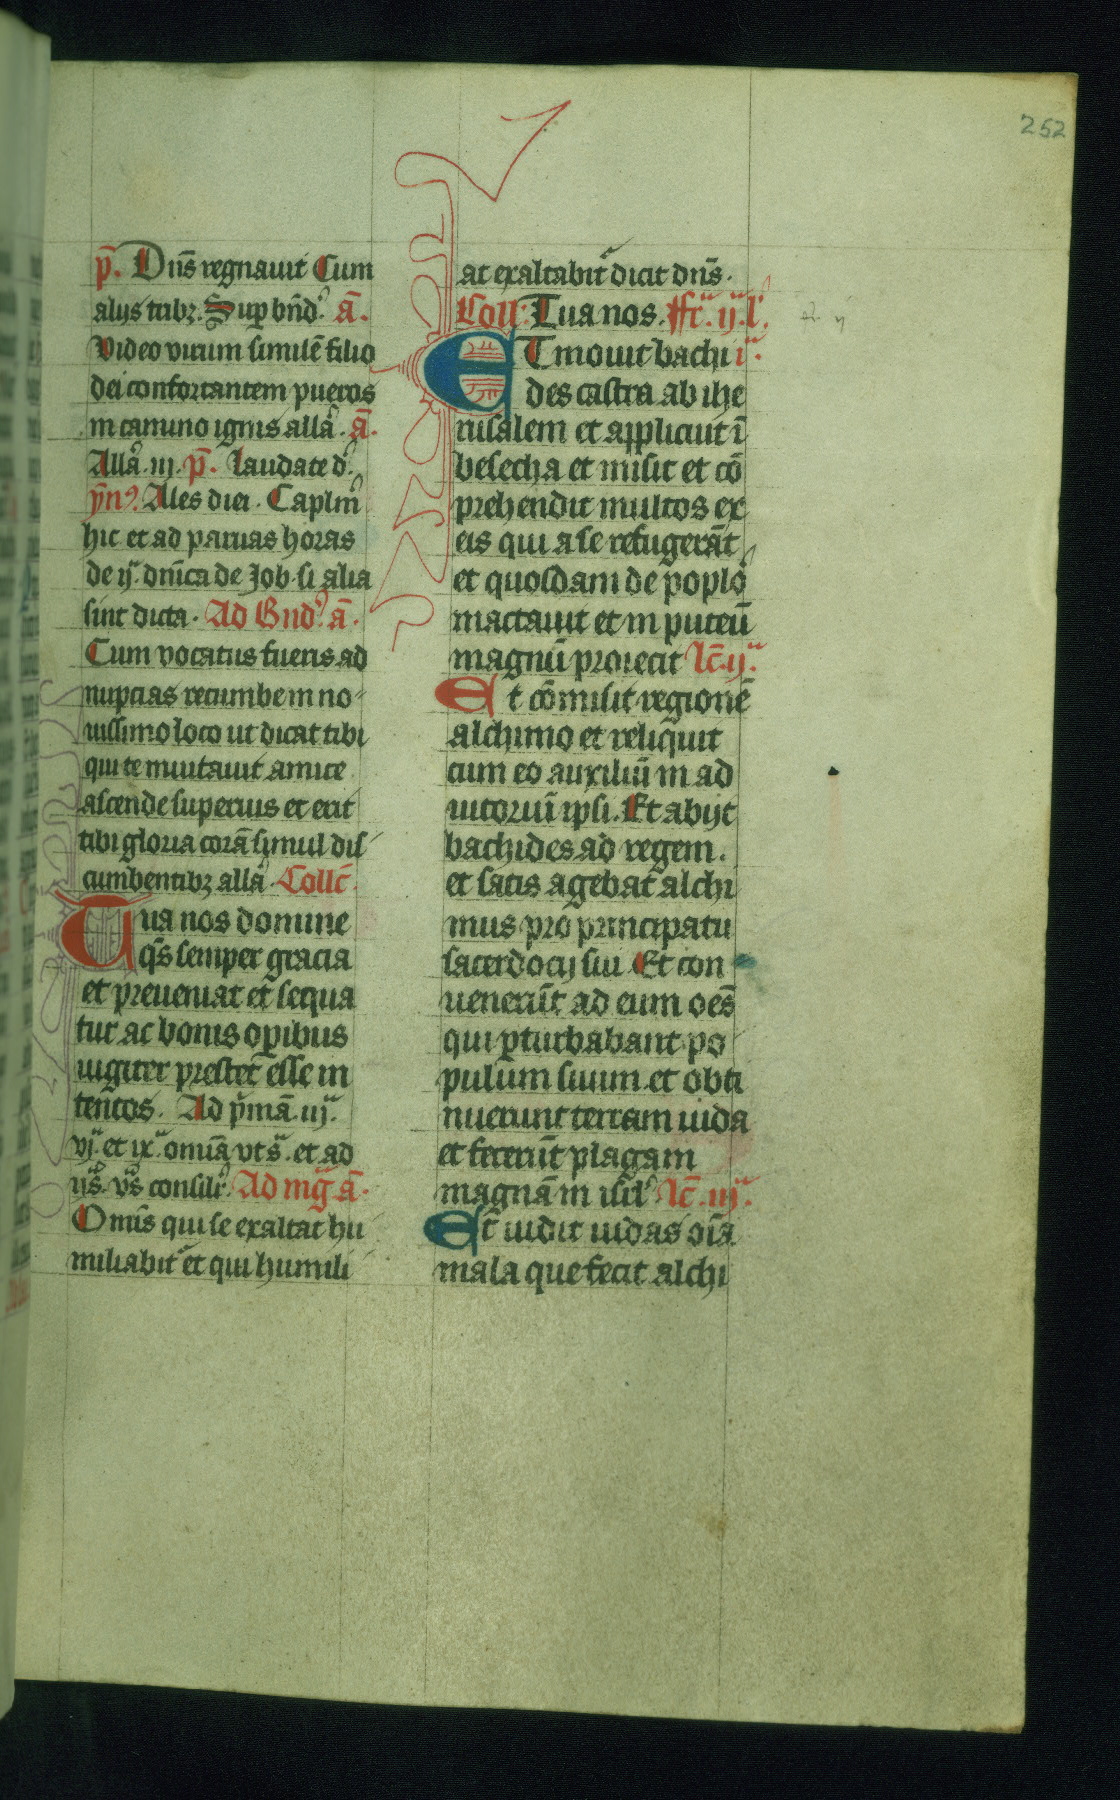 252
p̄. Dn̄s regnauit Cum
alijs tribꝫ. Suꝑ bn̄d ̓. ā.
Video virum similē filio
dei confortantem pueros
in camino ignis allā. ā.
Allā. iij. p̄. laudate d ̓.
ẏn ̓. Ales diei. Caplm̄
hic et ad paruas horas
de ijᵃ. dnīca de Job. si alia
sint dicta. Ad Bnd ̓. ā.
Cum vocatus fueris ad
nupcias recumbe in no-
uissimo loco ut dicat tibi
qui te inuitauit amice
ascende superius et erit
tibi gloria corā simul dis
cumbentibꝫ allā. Collc̄.
Tua nos domine
qs̄ semper gracia
et preueniat et sequa
tur ac bonis oꝑibus
iugiter prestet esse in
tentos. Ad p̄mā. iijᵃ.
vjᵃ. et ixᵃ. omīa vts ᵃ. et ad
ijᵃˢ. vꝰs consilr̄. Ad mḡ ā.
Omīs qui se exaltat hu
miliabit ᷑ et qui humili
at exaltabit ᷑ dicit dn̄s.
Coll. Tua nos. ffr̄. ijᵃ. l ̓.
ETmouit bachi iᵃ.
des castra ab ihe
rusalem et applicuit ī
besecha et misit et cō
prehendit multos ex
eis qui a se refugerāt
et quosdam de poplo
mactauit et in puteū
magnū proiecit lc̄. ijᵃ.
Et cōmisit regionē
alchimo et reliquit
cum eo auxiliū in ad
iutoriū ipsi. Et abijt
bachides ad regem.
et satis agebat alchi
mus pro principatu
sacerdocij sui. Et con
uenerūt ad eum oēs
qui ꝑturbabant po
pulum suum. et obti
nuerunt terram iuda
et fecerūt plagam
magnā in isrl ̓ lc̄. iijᵃ.
Et uidit iudas oīa
mala que fecit alchi